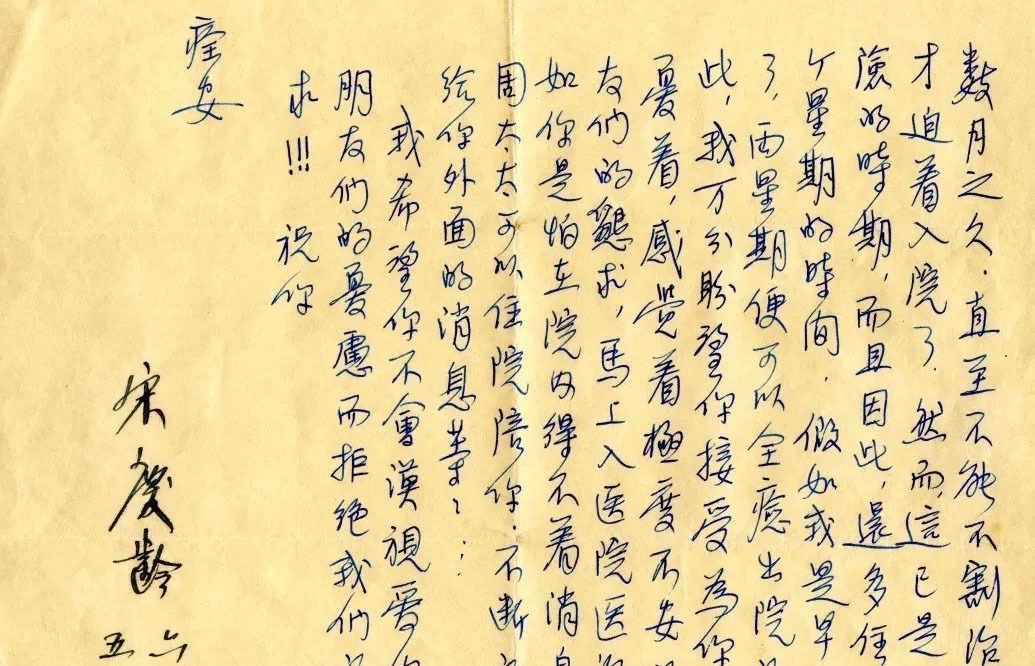 數月之久．直至不能不割治
才迫着入院了．然而，這已是
險的時期，而且因此，還多住
个星期的時间．假如我是早
了，两星期便可以全癒出院
此，我万分盼望你接受為你
憂着，感觉着極度不安
友們的懇求，馬上入医院医
如你是怕在院内得不着消息
周太太可以住院陪你．不断
给你外面的消息等：：
我希望你不會漠視爱你
朋友們的憂慮而拒绝我们
求!!! 祝你
痊安
宋慶齡
五 六